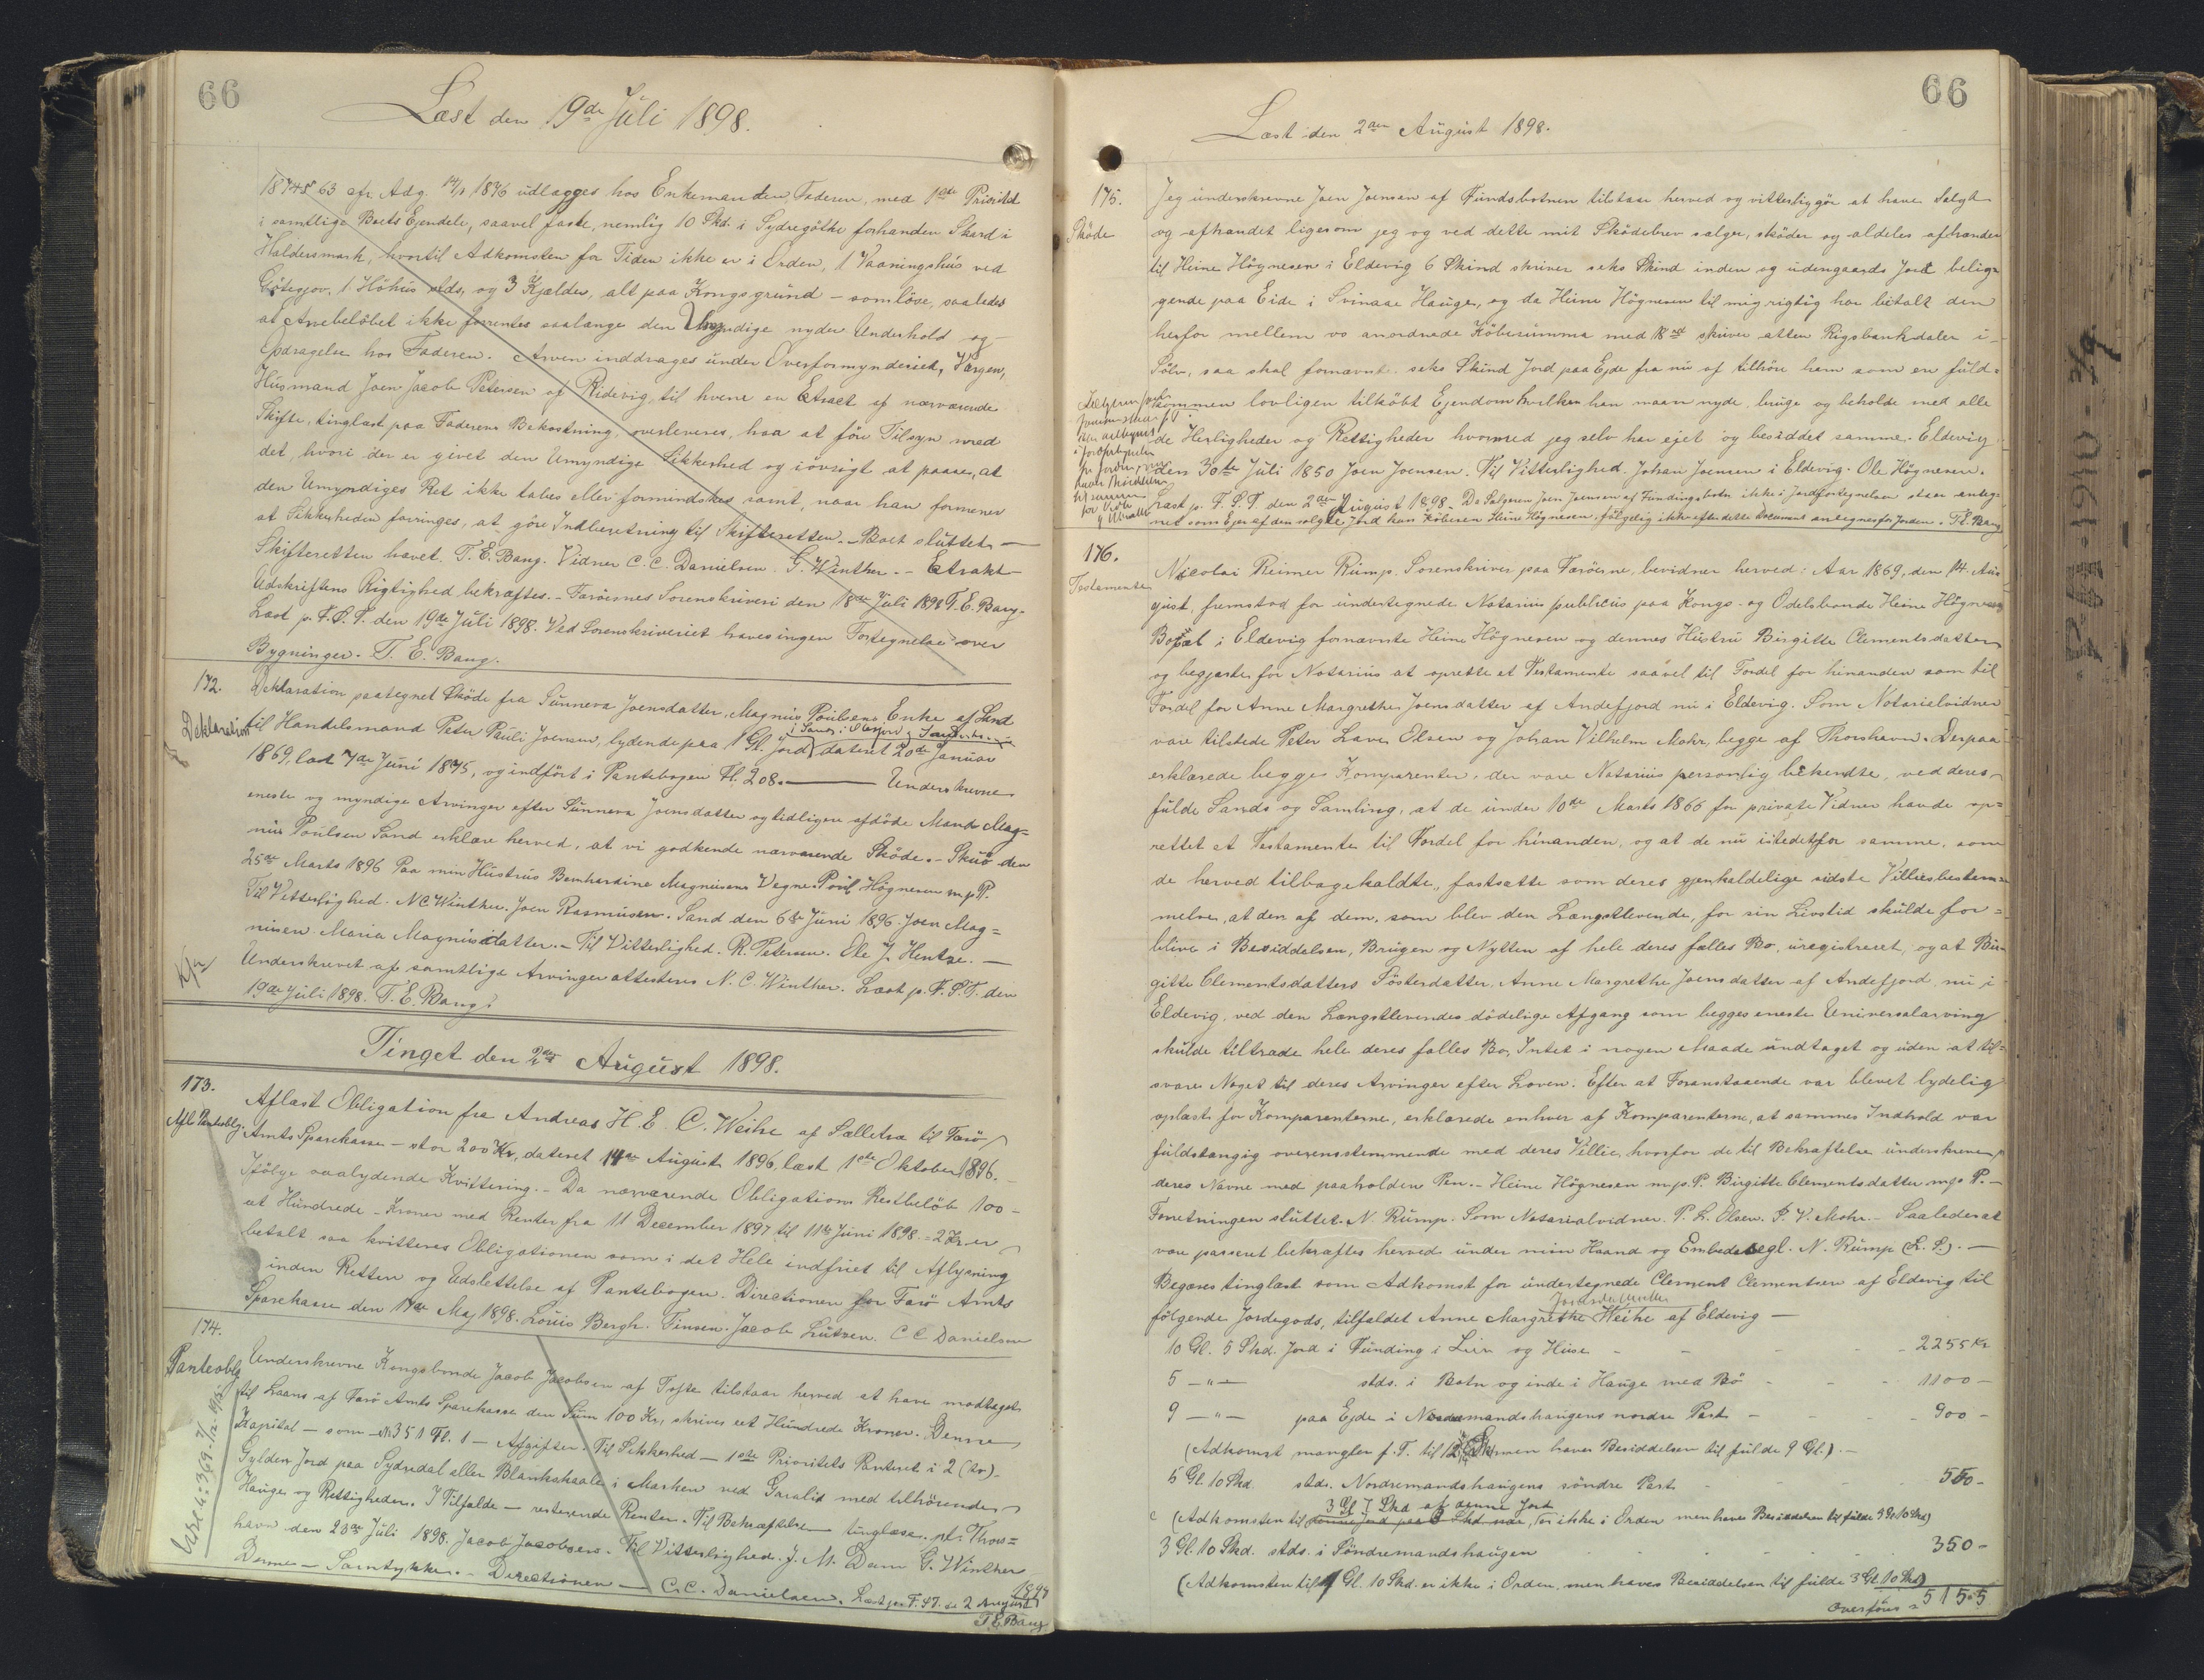 66
Læst den 19de Juli 1898.
63 efr. Adg. 14/1 1876 udlægges hos Enkemanden, Faderen, med 1ste Prioritet
i samtlige Boets Ejendele, saavel faste, nemlig 10 Skd. i Sydregöthe forhanden Skard i
Haldersmark, hvortil Adkomsten for Tiden ikke er i Orden, 1 Vaaningshus ved
Götegjov, 1 Höhus sds. og 3 Kjælder, alt paa Kongsgrund - som löse, saaledes
at Arvebelöbet ikke forrentes saalænge den Umyndige nyder Underhold og
Opdragelse hos Faderen. Arven inddrages under Overformynderiet, Værgen,
Husmand Joen Jacob Petersen af Ridevig, til hvem en Extract af nærværende
Skifte, tinglæst paa Faderens Bekostning, overleveres, har at före Tilsyn med
det, hvori der er givet den Umyndige Sikkerhed og iövrigt at paasee, at
den Umyndiges Ret ikke tabes eller formindskes samt, naar han formener
at Sikkerheden forringes, at göre Indberetning til Skifteretten. - Boet sluttet -
Skifteretten hævet. T. E. Bang. Vidner C. C. Danielsen. G. Winther. - Extrakt
Udskriftens Rigtighed bekræftes. - Færöernes Sorenskriveri den 18de Juli 1898 T. E. Bang.
Læst p. F. S. T. den 19de Juli 1898. Ved Sorenskriveriet haves ingen Fortegnelse over
Bygninger. T. E. Bang.
172.
Deklaration
Deklaration paategnet Sköde fra Sunneva Joensdatter, Magnus Poulsens Enke af Sand
til Handelsmand Peter Pauli Joensen, lydende paa 1 Gl. Jord dateret 20de Januar
1869, læst 7de Juni 1875, og indfört i Pantebogen Fl. 208. Underskrevne
eneste og myndige Arvinger efter Sunneva Joensdatter og tidligere afdöde Mand Mag=
nus Poulsen Sand erklære herved, at vi godkende nærværende Sköde. - Skuö den
25de Marts 1896 Paa min Hustrus Bernhardine Magnusens Vegne. Poul Högnesen m.p.P.
Til Vitterlighed. N C Winther. Joen Rasmusen. Sand den 6te Juni 1896. Joen Mag=
nusen. Maria Magnusdatter. - Til Vitterlighed. R. Petersen. Ole J. Hentze. -
Underskrevet af samtlige Arvinger attesteres N. C. Winther. Læst p. F. S. T. den
19de Juli 1898. T. E. Bang.
Tinget den 2den August 1898.
173.
Afl. Panteoblg.
Aflæst Obligation fra Andreas H. E. C. Weihe af Sælletræ til Færö
Amts Sparekasse - stor 200 Kr., dateret 14de August 1896, læst 1ste Oktober 1896. -
Ifölge saalydende Kvittering. - Da nærværende Obligations Restbelöb 100 -
et Hundrede - Kroner med Renter fra 11 December 1897 til 11te Juni 1898 = 2 Kr. er
betalt saa kvitteres Obligationen som i det Hele indfriet til Aflysning
inden Retten og Udslettelse af Pantebogen. Directionen for Færö Amts
Sparekasse den 17de Maj 1898. Louis Bergh. Finsen. Jacob Lützen. C C Danielsen
174.
Panteoblg
Underskrevne Kongsbonde Jacob Jacobsen af Tofte tilstaar herved at have modtaget
til Laans af Færö Amts Sparekasse den Sum 100 Kr., skriver eet Hundrede Kroner. Denne
Kapital - som № 351 Fl. 1 - Afgifter. Til Sikkerhed - 1ste Prioritets Panteret i 2 (to)
Gylden Jord paa Sydradal eller Blankskaale i Marken ved Garalid med tilhörende
Hauge og Rettigheder. I Tilfælde - resterende Renter. Til Bekræftelse - tinglæse. pt. Thors=
havn den 23de Juli 1898. Jacob Jacobsen. Til Vitterlighed. J. M. Dam G. Winther
Denne - Samtykke. - Directionen - C. C. Danielsen. Læst p. F. S. T. d. 2 August 1898
T E Bang
66
Læst den 2den August 1898.
175.
Sköde
Jeg underskrevne Joen Joensen af Fundsbotnen tilstaar herved og vitterliggör at have Solgt
og afhændet ligesom jeg og ved dette mit Sködebrev sælger, sköder og aldeles afhænder
til Heine Högnesen i Eldevig 6 Skind skriver seks Skind inden og udengaards Jord belig=
gende paa Eide i Svinaae Hauge, og da Heine Högnesen til mig rigtig har betalt den
herfor mellem os anordnede Köbesumma med 18 rd skriver atten Rigsbankdaler i
Sölv, saa skal fornævnte seks Skind Jord paa Ejde fra nu af tilhöre ham som en fuld=
kommen lovligen tilköbt Ejendom hvilken han maa nyde, bruge og beholde med alle
de Herligheder og Rettigheder hvormed jeg selv har ejet og besiddet samme. Eldevig
den 30te Juli 1850 Joen Joensen. Til Vitterlighed. Johan Joensen i Eldevig. Ole Högnesen.
Læst p. F. S. T. den 2den August 1898. Da Sælgeren Joen Joensen af Fundingsbotn ikke i Jordfortegnelsen staar anteg=
net som Ejer af den solgte Jord kan Köberen Heine Högnesen, fölgelig ikke efter dette Document antegnes for Jorden. T. E. Bang
176.
Testamente
Nicolai Reimer Rump, Sorenskriver paa Færöerne, bevidner herved: Aar 1869, den 14. Au=
gust, fremstod for undertegnede Notarius publicus paa Kongs- og Odelsbonde Heine Högnesens
Bopæl i Eldevig fornævnte Heine Högnesen og dennes Hustru Birgitte Clementsdatter
og begjærte for Notarius at oprette et Testamente saavel til Fordel for hinanden som til
Fordel for Anne Margrethe Joensdatter af Andefjord nu i Eldevig. Som Notarialvidner
vare tilstede Peter Laves Olsen og Johan Vilhelm Mohr, begge af Thorshavn. Derpaa
erklærede begge Komparenter, der vare Notarius personlig bekendte, ved deres
fulde Sands og Samling, at de under 10de Marts 1866 for private Vidner havde op=
rettet et Testamente til Fordel for hinanden, og at de nu istedetfor samme, som
de herved tilbagekaldte, fastsatte som deres gjenkaldelige sidste Villiesbestem=
melse, at den af dem, som blev den Længstlevende, for sin Livstid skulde for=
blive i Besiddelsen, Brugen og Nytten af hele deres fælles Bo, uregistreret, og at Bir=
gitte Clementsdatters Sösterdatter, Anne Margrethe Joensdatter af Andefjord nu i
Eldevig, ved den Længstlevendes dödelige Afgang som begges eneste Universalarving
skulde tiltræde hele deres fælles Bo, Intet i nogen Maade undtaget og uden at til=
svare Noget til deres Arvinger efter Loven. Efter at Foranstaaende var blevet lydelig
oplæst for Komparenterne, erklærede enhver af Komparenterne, at sammes Indhold var
fuldstængig overensstemmende med deres Villie, hvorfor de til Bekræftelse underskreve
deres Navne med paaholden Pen. - Heine Högnesen m.p.P. Birgitte Clementsdatter m.p.P. -
Forretningen sluttet. N. Rump. Som Notarialvidner. P. L. Olsen. J. V. Mohr. - Saaledes at
være passeret bekræftes herved under min Haand og Embedssegl. N. Rump (L. S.). -
Begæres tinglæst som Adkomst for undertegnede Clement Clementsen af Eldevig til
fölgende Jordegods, tilfaldet Anne Margrethe Weihe af Eldevig -
10 Gl. 5 Skd. Jord i Funding i Lier og Huse - 2255 Kr
5 - " - stds. i Botn og inde i Hauge med Bö - 1100 -
9 - " - paa Ejde i Nordremandshaugens nordre Part - 900 -
(Adkomst mangler f. T. til men haves Besiddelsen til fulde 9 Gl.). -
5 Gl. 10 Skd. stds. Nordremandshaugens söndre Part 550 -
3 Gl 7 Skd af denne Jord
(Adkomsten til er ikke i Orden men haves Besiddelsen til fulde 5 Gl 10 Skd)
3 Gl. 10 Skd. stds. i Söndremandshaugen 350 -
(Adkomsten til 1 Gl. 10 Skd. er ikke i Orden, men haves Besiddelsen til fulde 3 Gl. 10 Skd)
Overföres 5155